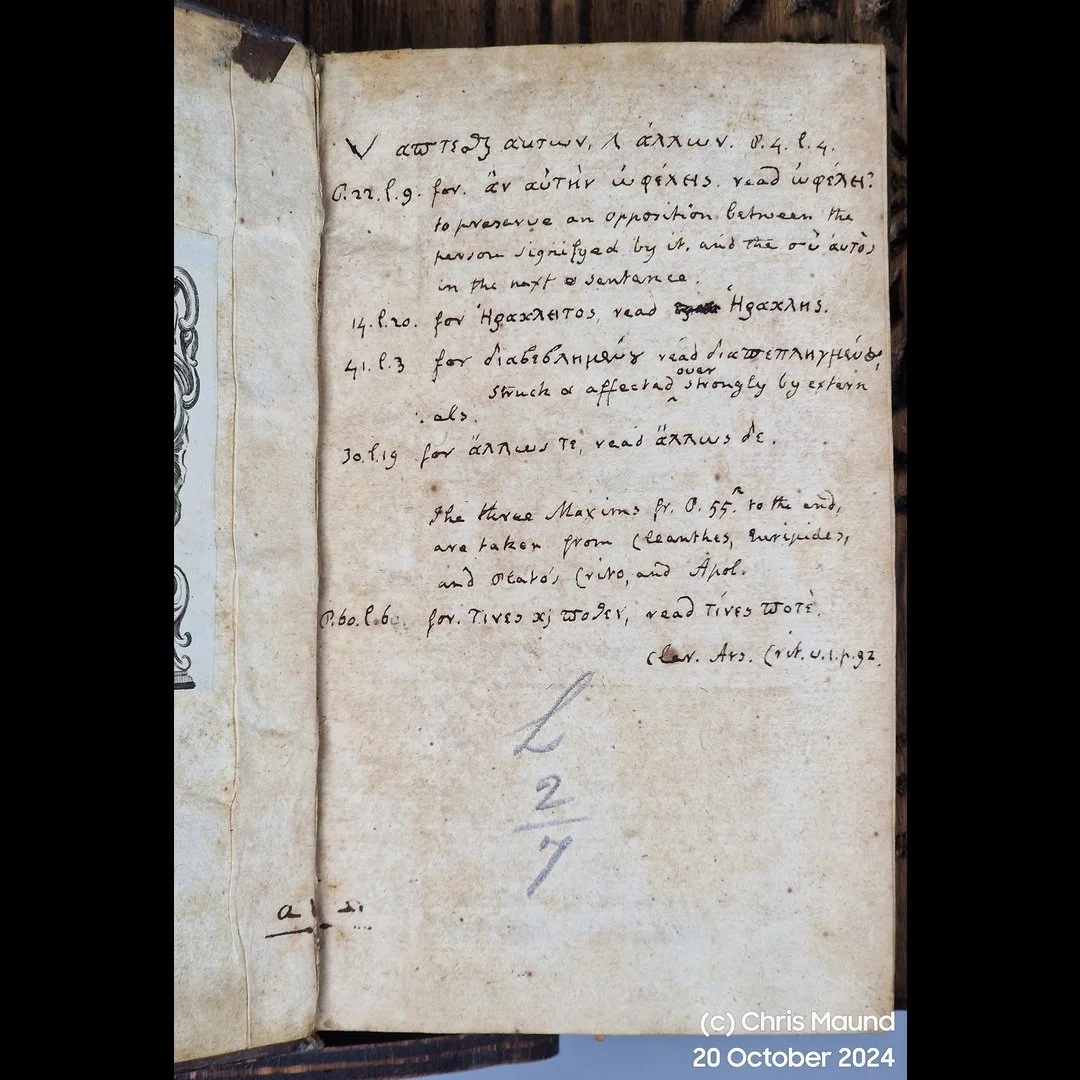 αϖτεσθ αυτων, λ άλλων. P. 4. l. 4.
P. 22. l. 9. for. ἂν αὐτὴν ὠφέλεις. read ὠφέλει?
to preserve an opposition between the
person signifyed by it, and the σὺ αὐτὸς
in the next sentence.
14. l. 20. for Ἡρακλειτος, read Ἡρακλης.
41. l. 3 for διαβεβλημένȣ read διαϖεπληγμένȣ,
struck & affected over strongly by extern
als.
30. l. 19 for ἄλλως τε, read ἄλλως δε.
The three Maxims fr. P. 55. to the end,
are taken from Cleanthes, Euripides,
and Plato's Crito, and Apol.
P. 60. l. 6. for. τινες ϗ ϖοθεν, read τίνες ϖοτὲ.
Cler. Ars. Crit. v. 1. p. 92.
L
2
7
a
(c) Chris Maund
20 October 2024